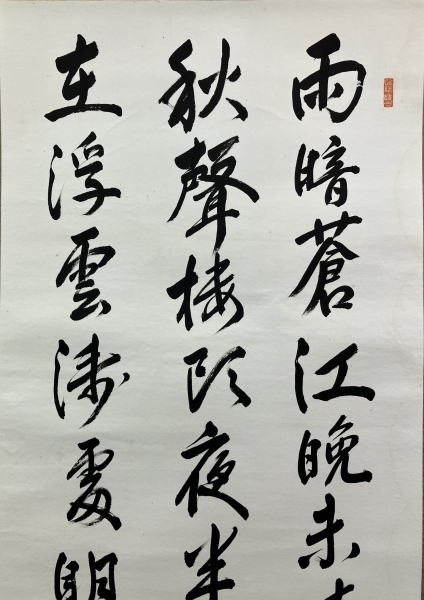 雨暗蒼江晚未
秋聲樓頭夜半
在浮雲淺處明